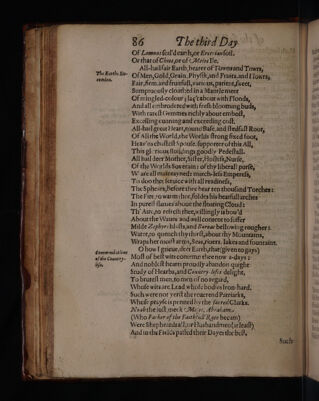 86 The third Day
Of Lemnos seal'd earth, or Eretrian soil.
Or that of Chios, or of Melos Ile.
All-hail fair Earth, bearer of Towns and Towrs,
The Earths Encomion.
Of Men, Gold, Grain, Physik, and Fruits, and Flowrs,
Fair, firm, and fruitfull, various, patient, sweet,
Sumptuously cloathed in a Mantle meet
Of mingled-colour; lac't about with Flouds,
And all embrodered with fresh blooming buds,
With rarest Gemmes richly about embost,
Excelling cunning and exceeding cost.
All-hail great Heart, round Base, and stedfast Root,
Of All the World, the Worlds strong fixed foot,
Heav'ns chastest Spouse, supporter of this All,
This glorious Buildings goodly Pedestall.
All hail deer Mother, Sister, Hostess, Nurse,
Of the Worlds Soverain: of thy liberall purse,
W'are all maintayned: march-less Emperess,
To doo thee service with all readiness,
The Sphears, before thee bear ten thousand Torches:
The Fire, to warm thee, foldes his heatfull arches
In purest flames above the floating Cloud:
Th' Aire, to refresh thee, willingly is bow'd
About the Waves, and well content to suffer
Milde Zephyrs blasts, and Boreas bellowing rougher:
Water, to quench thy thirst, about thy Mountains,
Wraps her moist arms, Seas, rivers, lakes and fountains.
Commendations of the Country-life.
O how I grieve, deer Earth, that (given to gays)
Most of best wits contemn thee now a-days:
And noblest hearts proudly abandon quight
Study of Hearbs, and Country-lifes delight,
To brutest men, to men of no regard,
Whose wits are Lead, whose bodies Iron-hard.
Such were not yerst the reverend Patriarks,
Whose prayse is penned by the sacred Clarks.
Noah the just, meek Moses, Abraham,
(Who Father of the Faithfull Race becam)
Were Shepheards all, or Husbandmen (at least)
And in the Fields passed their Dayes the best.
Such